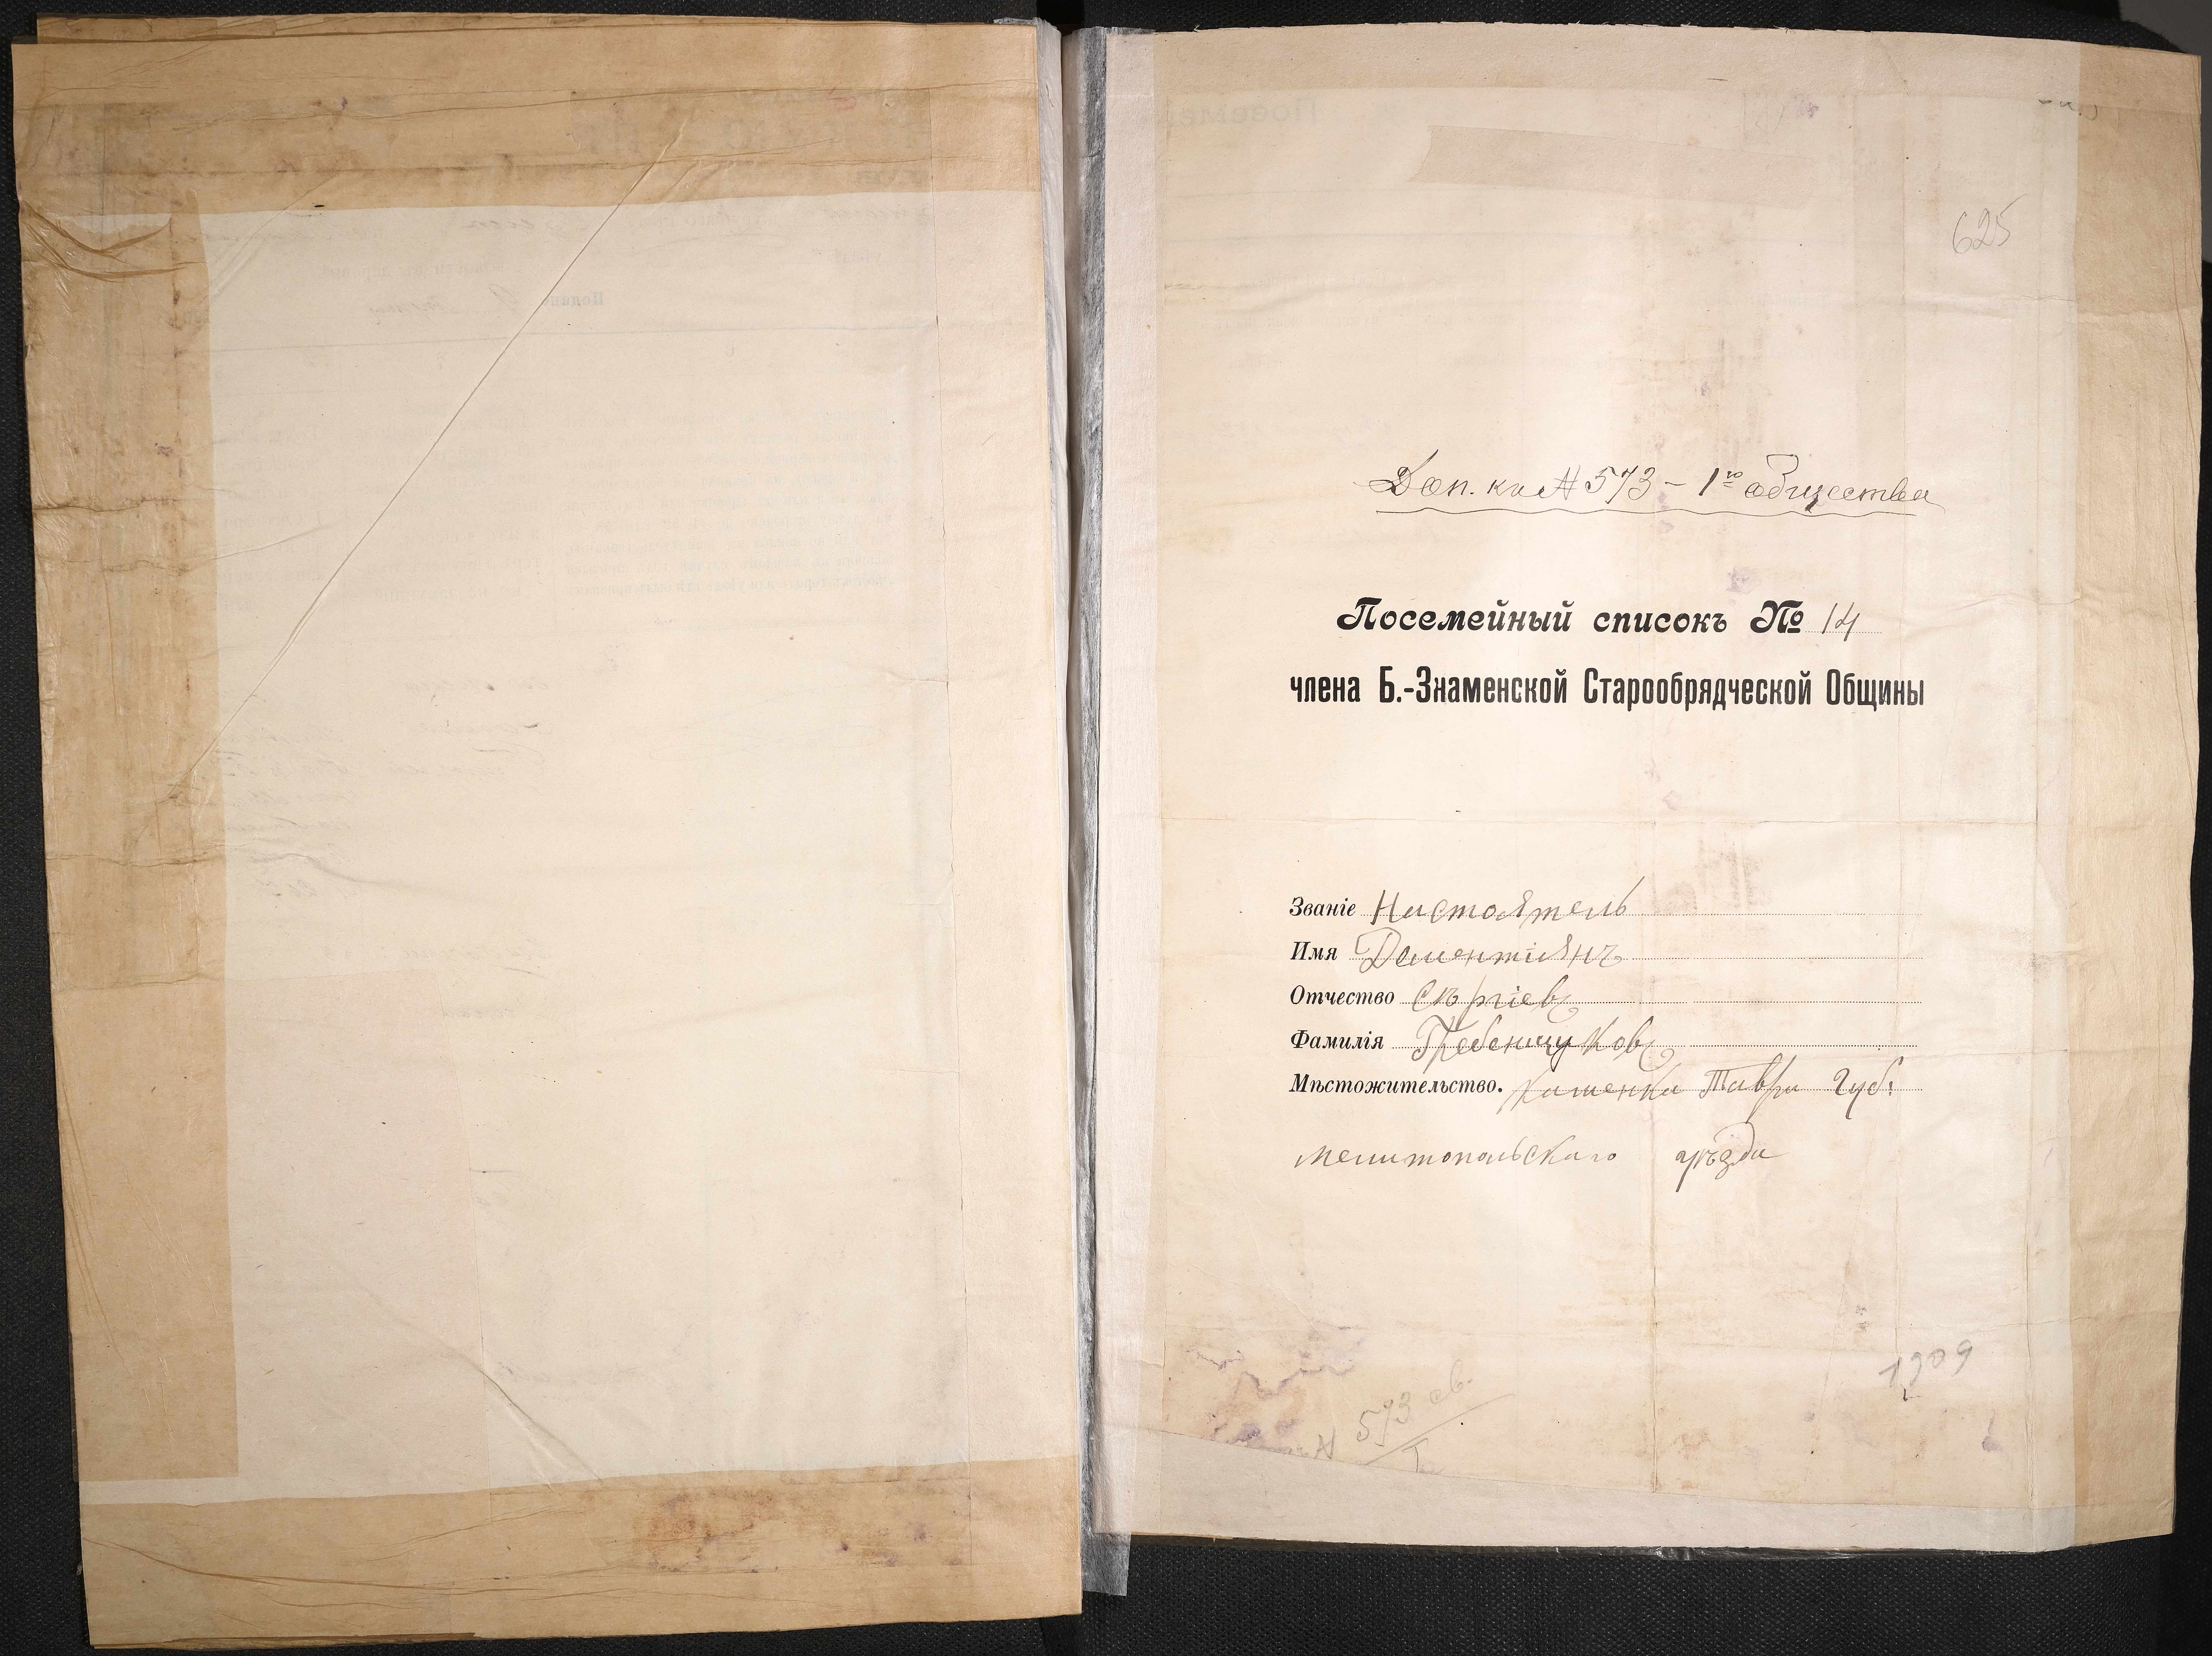 625
Доп. къ № 573 – 1го общества
Посемейный списокъ № 14
члена Б.-Знаменской Старообрядческой Общины
Званіе Настоятель
Имя Дементіянъ
Отчество Сѣргіевъ
Фамилія Гребенщуковъ
Мѣстожительство. Каменка Таври Губ:
мелитопольскаго уѣзда
1909
№ 573 св.
I